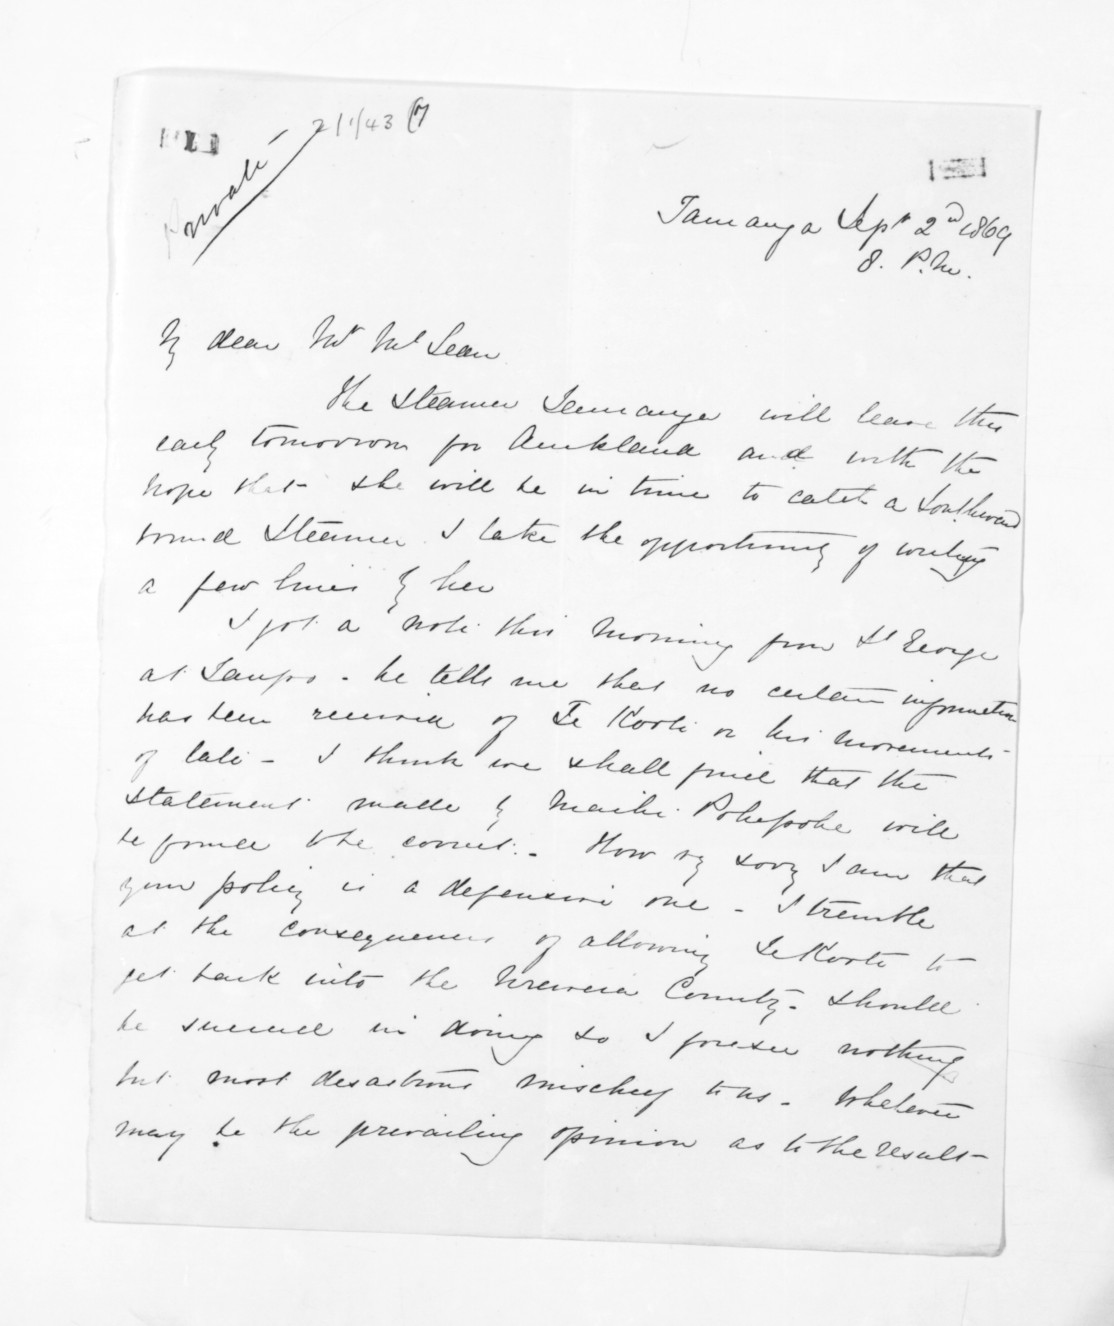 Private
2/1/43 (7
Tauranga Sept 2nd 1869
8. P.M.
My dear Mr McLean
The Steamer Tauranga will leave this
early tomorrow for Auckland and with the
hope that she will be in time to catch a Southward
bound Steamer I take the opportunity of writing
a few lines by her
I got a note this morning from St George
at Taupo - he tells me that no certain information
has been received of Te Kooti or his movements
of late - I think we shall find that the
statement made by Maihi Pokepoke will
be found the correct. - How sorry I am that
your policy is a defensive one - I tremble
at the consequences of allowing Te Kooti to
get back into the Urewera Country - should
he succeed in doing so I foresee nothing
but most desastrous mischief to us - Whatever
may be the prevailing opinion as to the result -